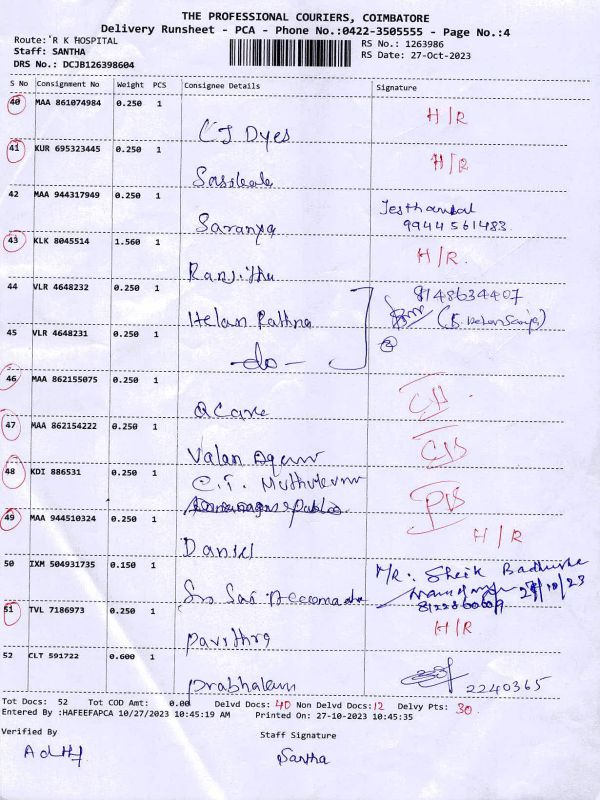 THE PROFESSIONAL COURIERS, COIMBATORE
Delivery Runsheet - PCA - Phone No.:0422-3505555 - Page No.:4
Route: R K HOSPITAL RS No.: 1263986
Staff: SANTHA RS Date: 27-Oct-2023
DRS No.: DCJB126398604
S No Consignment No Weight PCS Consignee Details Signature
40 MAA 861074984 0.250 1 H/R
CJ Dyes
41 KUR 695323445 0.250 1 H/R
Sasikala
42 MAA 944317949 0.250 1
Saranya 9944561483
43 KLK 8045514 1.560 1 H/R.
Ranjitha
44 VLR 4648232 0.250 1 8148634407
Helan Rathna
45 VLR 4648231 0.250 1
-do-
46 MAA 862155075 0.250 1
Q Care
47 MAA 862154222 0.250 1
Valan
48 KDI 886531 0.250 1
C.T.
49 MAA 944510324 0.250 1 H/R
Daniel
50 IXM 504931735 0.150 1 Mr. Sheik Badhusha
Sri Sai
51 TVL 7186973 0.250 1 H/R
Pavithra
52 CLT 591722 0.600 1
Prabhakaran 2240365
Tot Docs: 52 Tot COD Amt: 0.00 Delvd Docs: 40 Non Delvd Docs: 12 Delvy Pts: 30.
Entered By :HAFEEFAPCA 10/27/2023 10:45:19 AM Printed On: 27-10-2023 10:45:35
Verified By Staff Signature
Santha